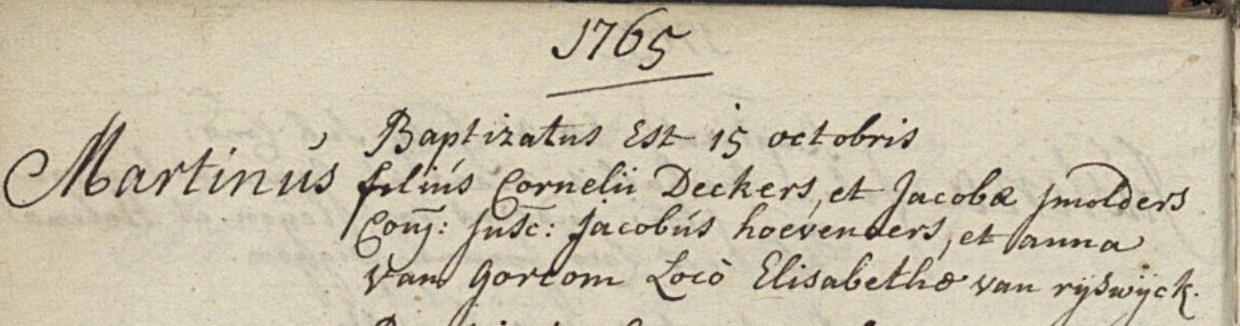 1765
Baptizatus Est 15 octobris
Martinus filius Cornelii Deckers, et Jacobæ smolders
Conj: susc: Jacobus hoevenaers, et anna
van Gorcom Loco Elisabethæ van rÿswÿck.